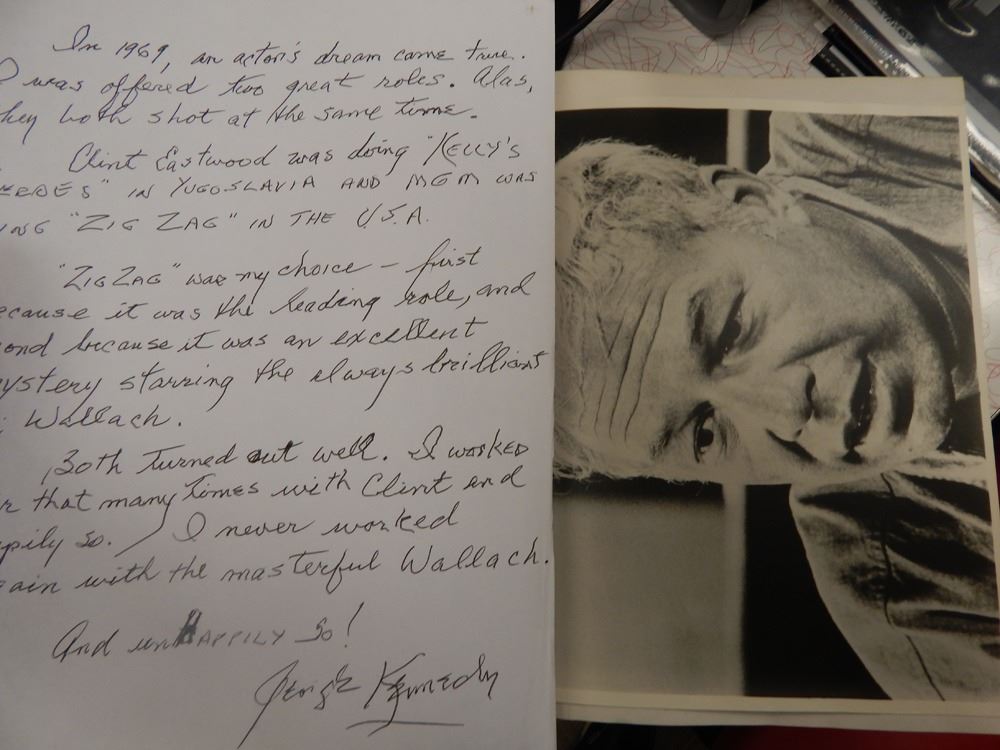 In 1969, an actor's dream came true.
I was offered two great roles. Alas,
hey both shot at the same time.
Clint Eastwood was doing "KELLY'S
EROES" IN YUGOSLAVIA AND MGM WAS
ING "ZIG ZAG" IN THE U.S.A.
"ZIG ZAG" was my choice – first
ecause it was the leading role, and
ond because it was an excellent
ystery starring the always brilliant
i Wallach.
Both turned out well. I worked
r that many times with Clint and
pily so. I never worked
ain with the masterful Wallach.
And unHAPPILY So!
George Kennedy